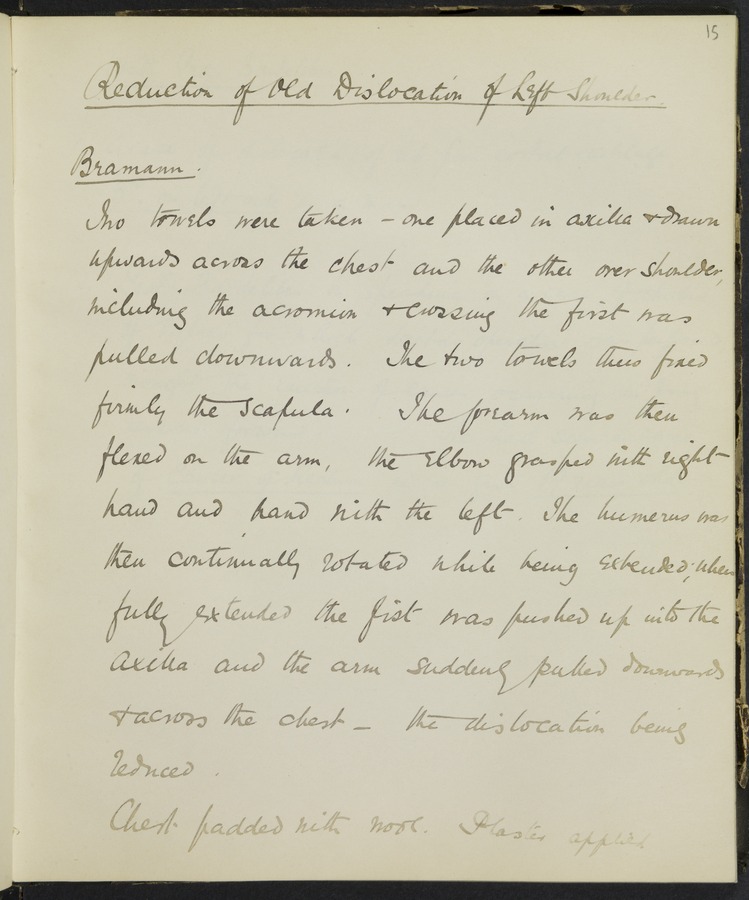 15
Reduction of Old Dislocation of Left Shoulder.
Bramann.
Two towels were taken – one placed in axilla & drawn
upwards across the chest and the other over shoulder,
including the acromion & crossing the first was
pulled downwards. The two towels thus fixed
firmly the scapula. The forearm was then
flexed on the arm, the elbow grasped with right
hand and hand with the left. The humerus was
then continually rotated while being extended; when
fully extended the fist was pushed up into the
axilla and the arm suddenly pulled downwards
& across the chest – the dislocation being
reduced.
Chest padded with wool. Plaster applied.